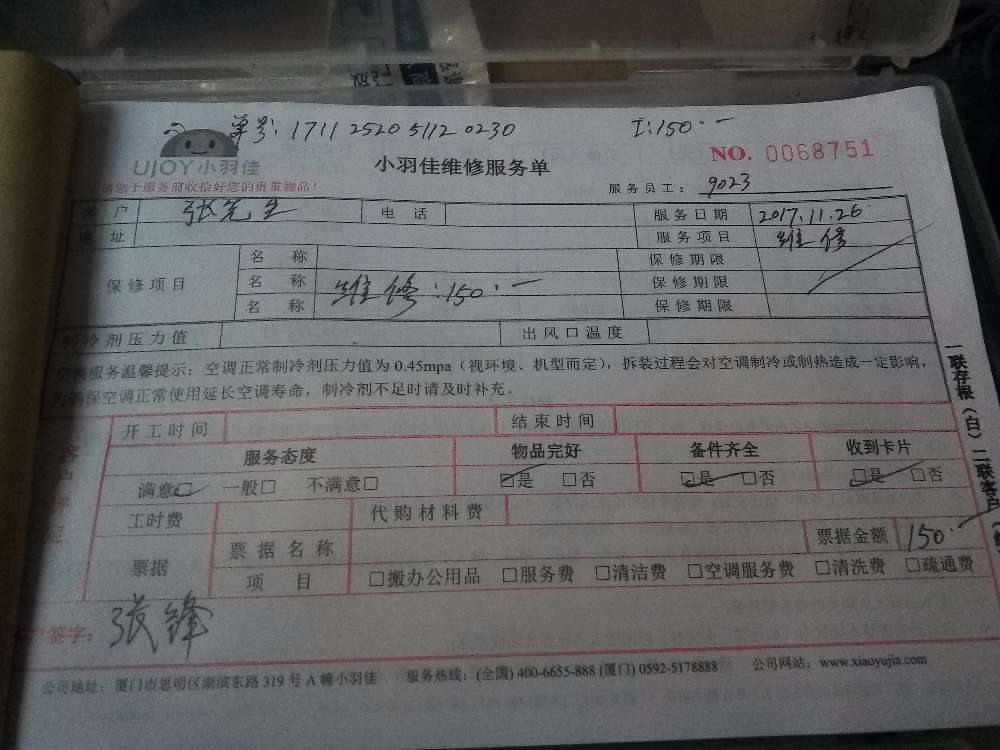 单号: 1711 2520 5112 0230 工:150.一
UJOY小羽佳 小羽佳维修服务单 NO. 0068751
请您于服务前收拾好您的贵重物品! 服务员工: 9023
客户 张先生 电话 服务日期 2017.11.26.
地址 服务项目 维修
名称 保修期限
保修项目 名称 维修:150.一 保修期限
名称 保修期限
制冷剂压力值 出风口温度
空调服务温馨提示:空调正常制冷剂压力值为0.45mpa(视环境、机型而定),拆装过程会对空调制冷或制热造成一定影响,
为确保空调正常使用延长空调寿命,制冷剂不足时请及时补充。
开工时间 结束时间
服务态度 物品完好 备件齐全 收到卡片
满意□ 一般□ 不满意□ □是 □否 □是 □否 □是 □否
工时费 代购材料费
票据 票据名称 票据金额 150.
项目 □搬办公用品 □服务费 □清洁费 □空调服务费 □清洗费 □疏通费
客户签字: 张锋
公司地址:厦门市思明区湖滨东路319号A幢小羽佳 服务热线:(全国) 400-6655-888 (厦门) 0592-5178888 公司网站:www.xiaoyujia.com
一联存根(白)二联客户